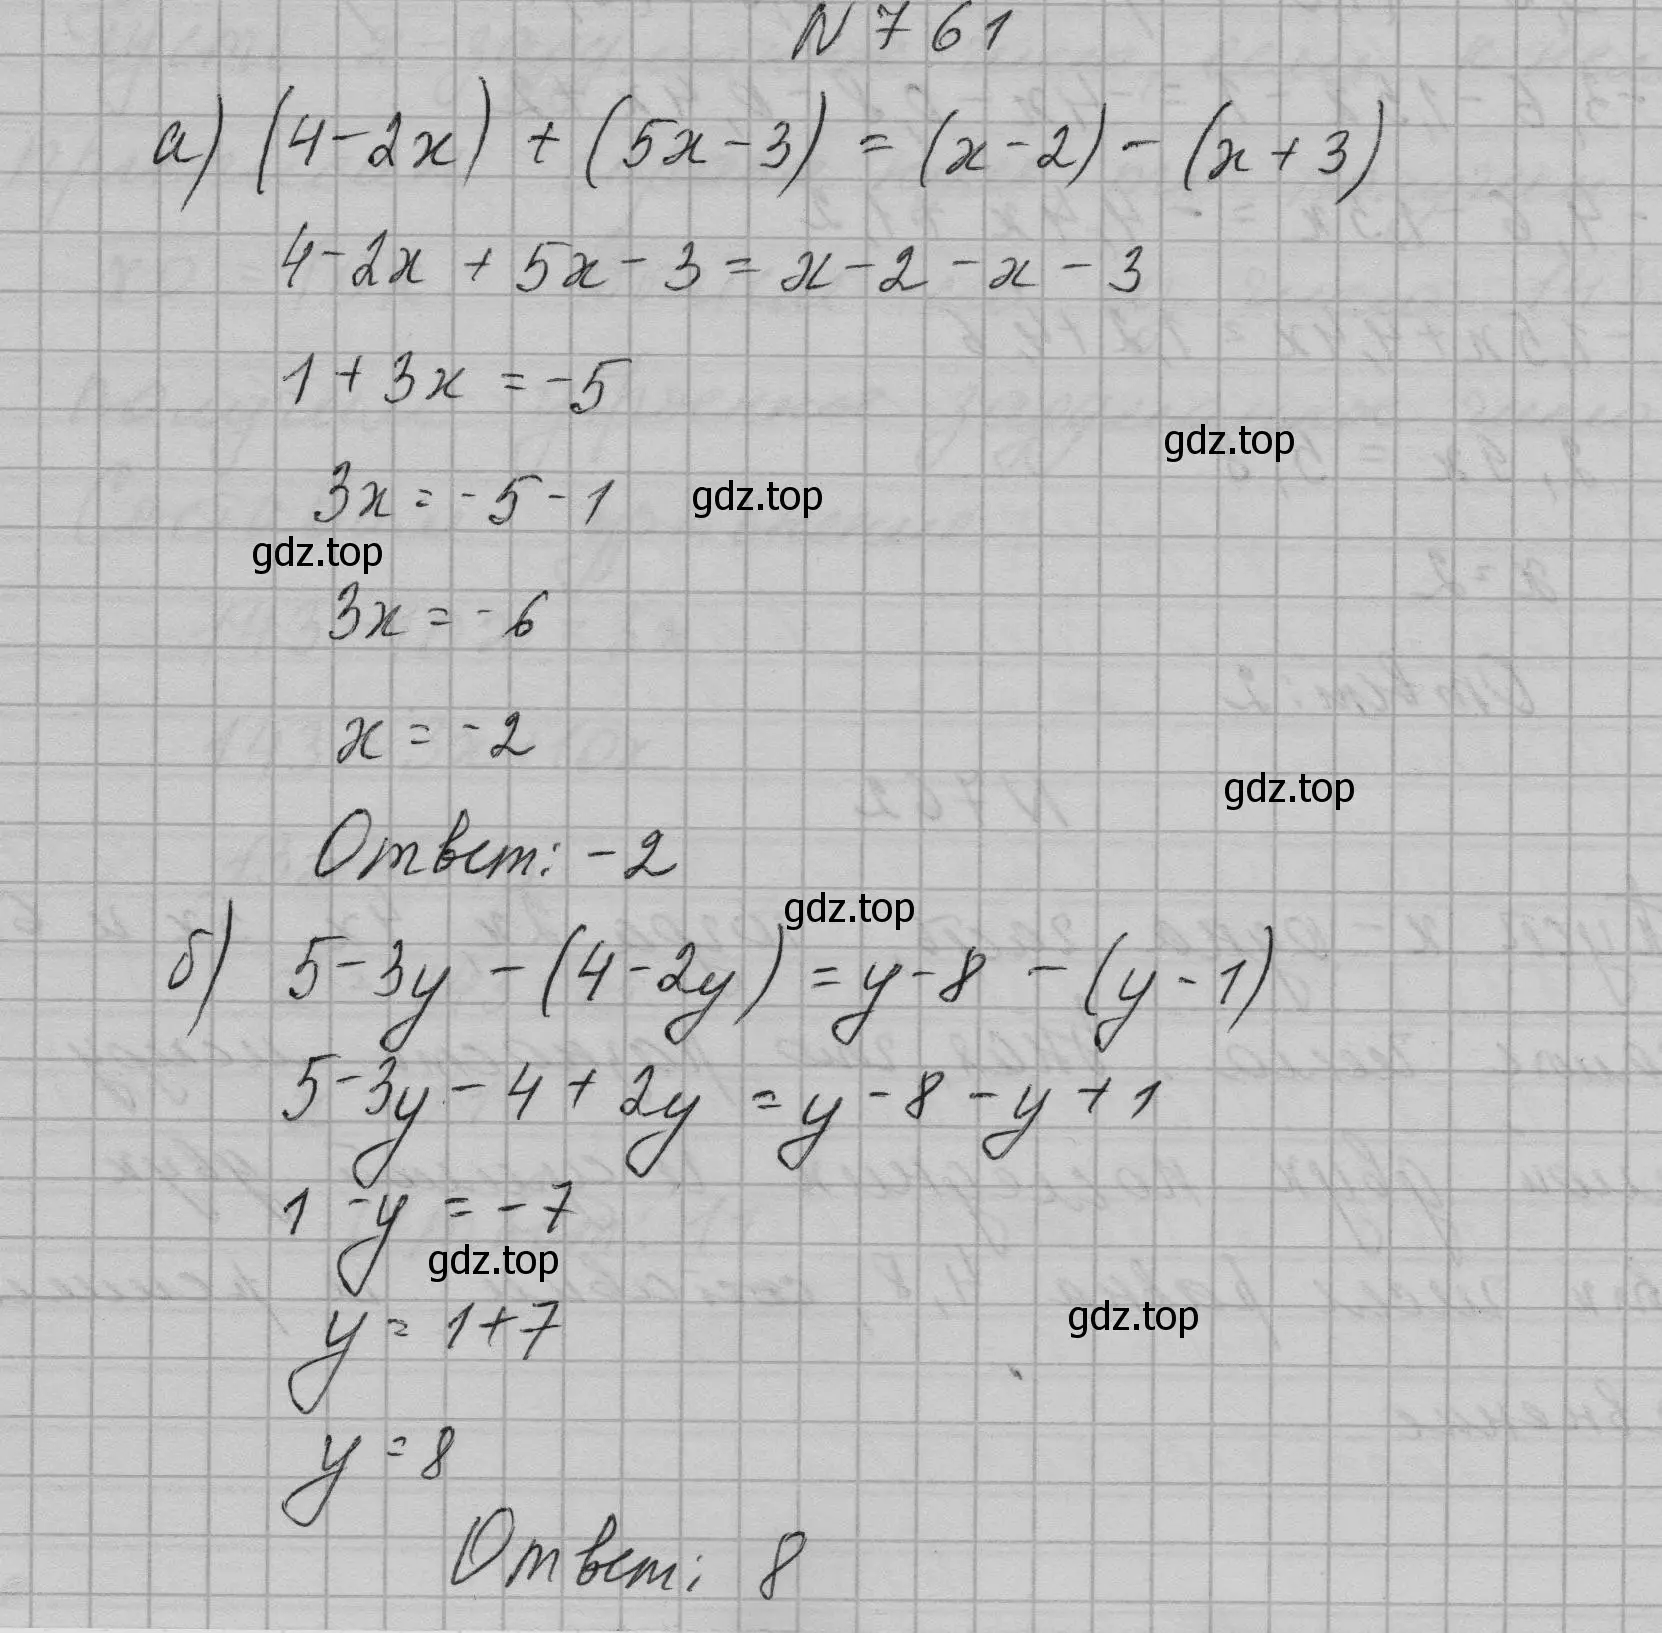 N 761
а) (4-2x) + (5x-3) = (x-2) - (x+3)
4-2x + 5x-3 = x-2-x-3
1+3x = -5
gdz.top
3x = -5-1
gdz.top
gdz.top
3x = -6
x = -2
gdz.top
Ответ: -2
gdz.top
б) 5-3y - (4-2y) = y-8 - (y-1)
5-3y-4+2y = y-8-y+1
1-y = -7
gdz.top
y = 1+7
gdz.top
y = 8
Ответ: 8